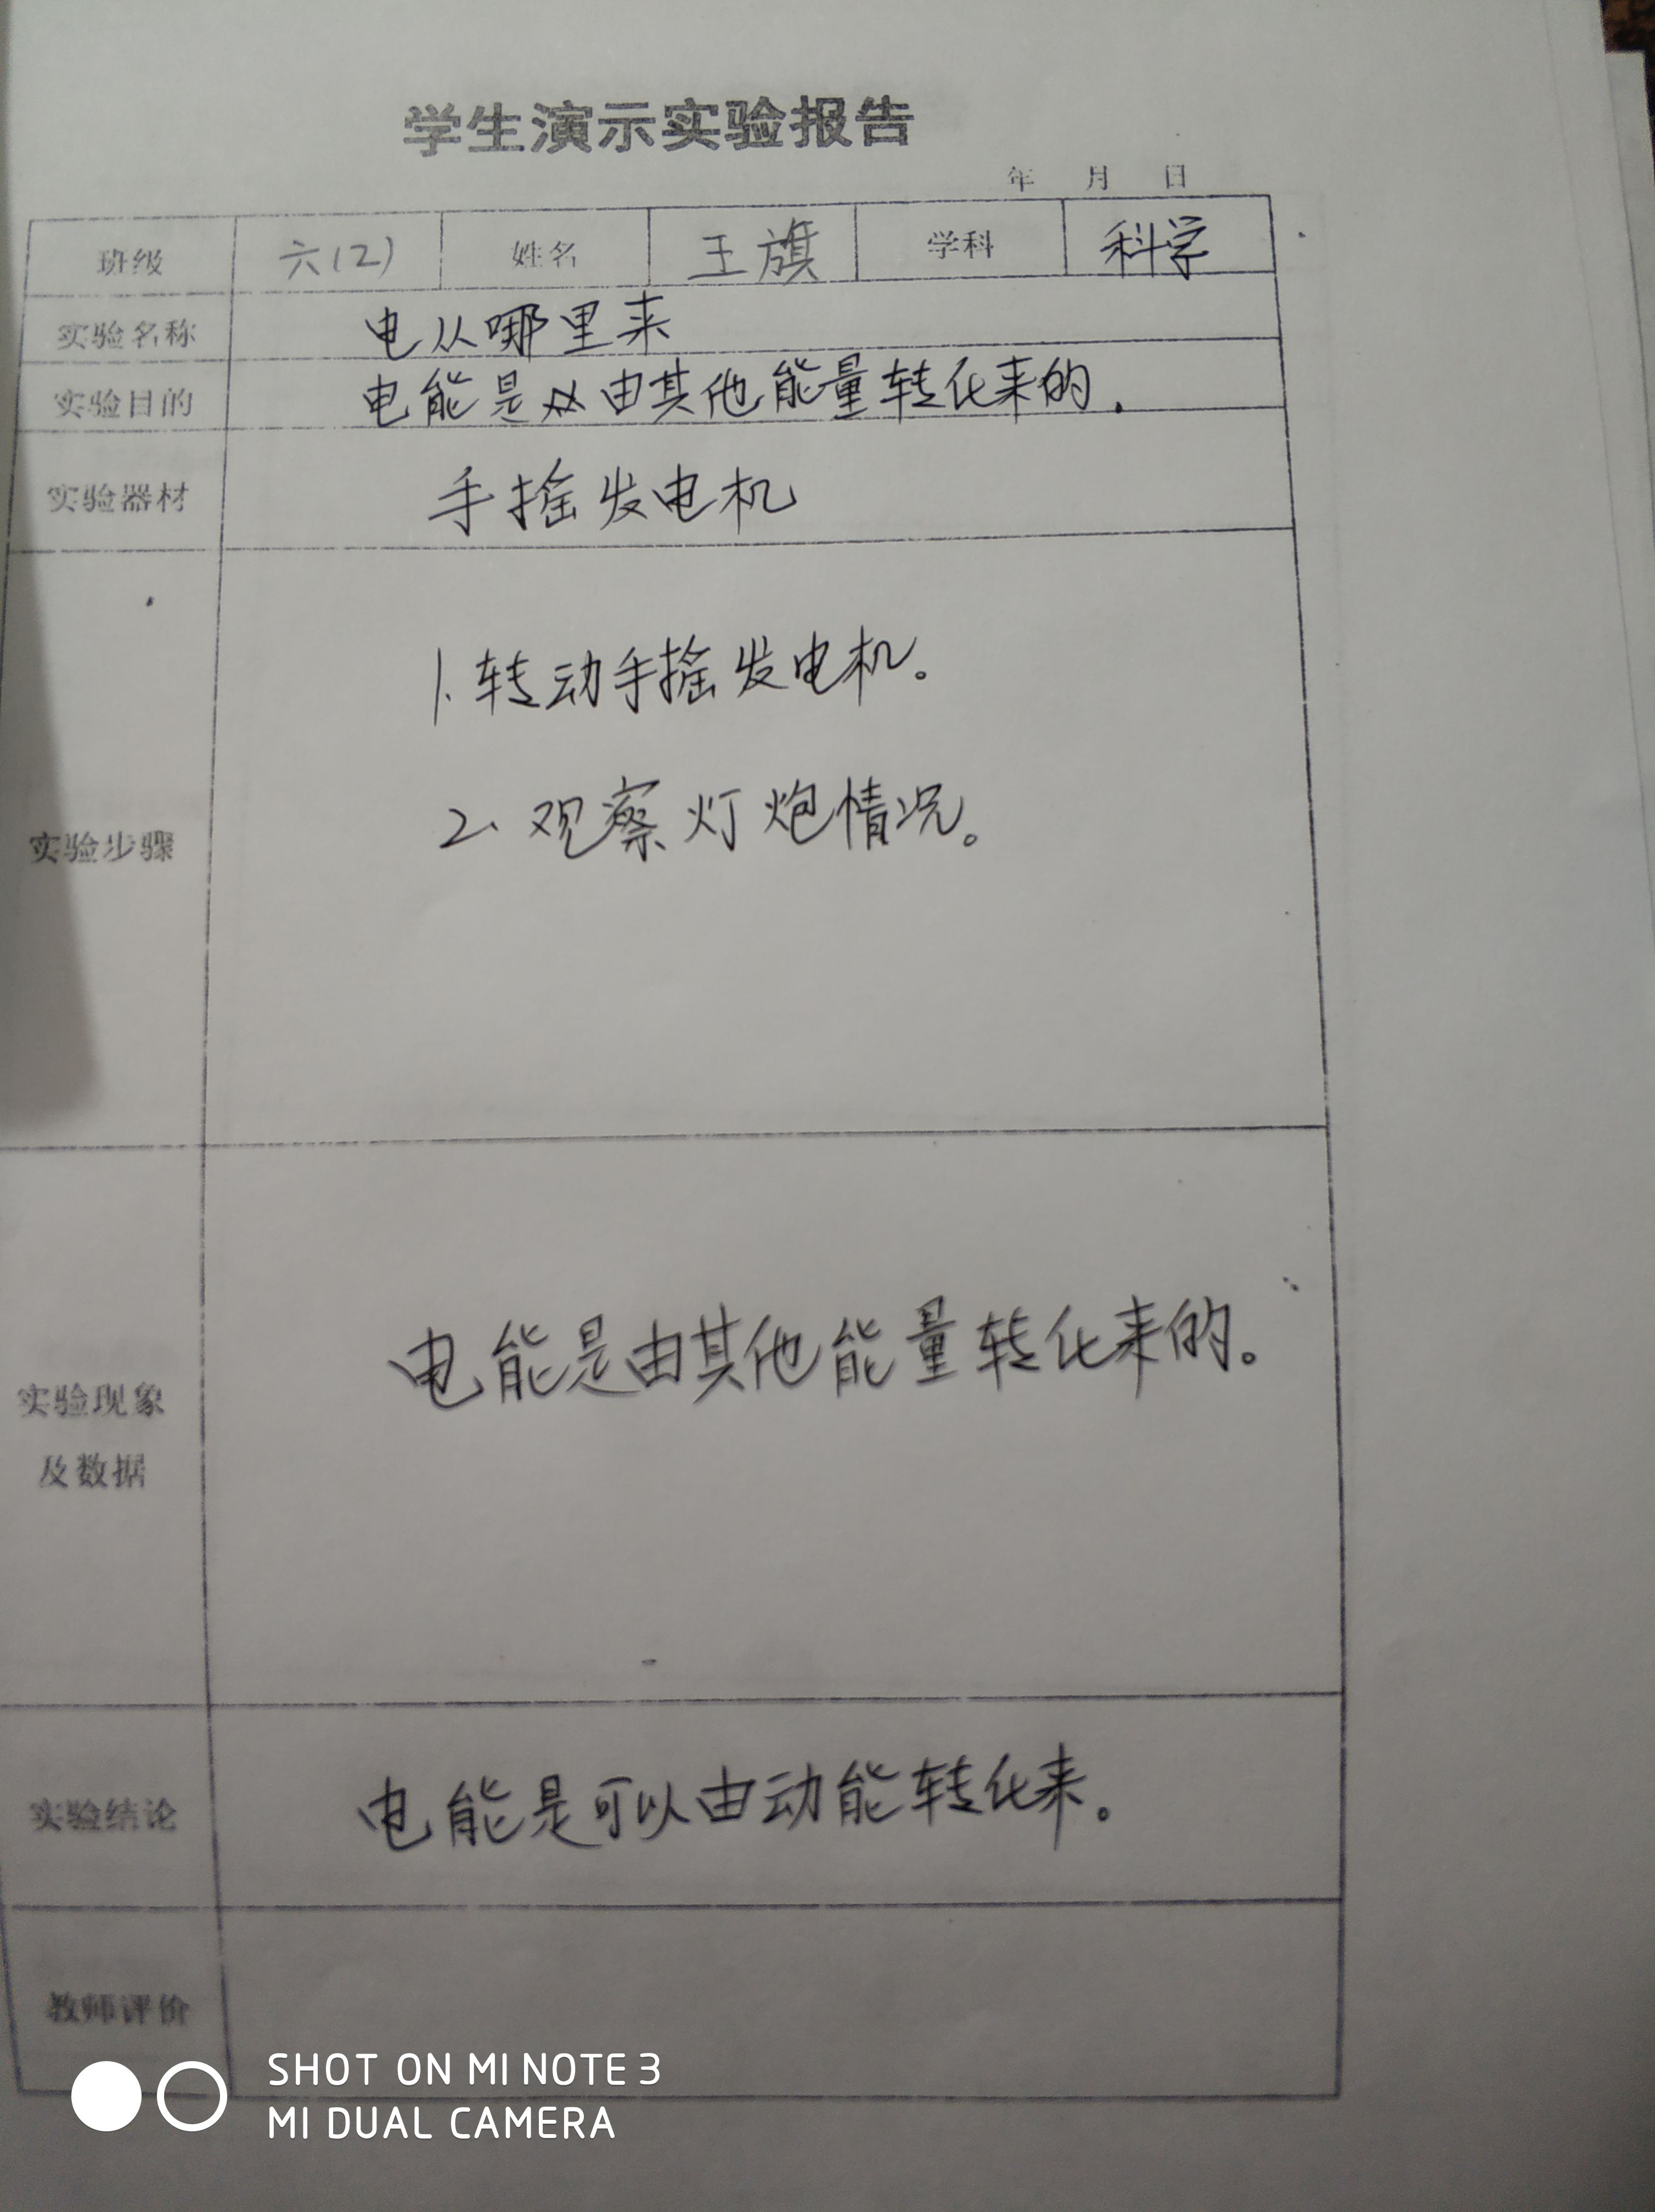 学生演示实验报告
年 月 日
班级 六(2) 姓名 王旗 学科 科学
实验名称 电从哪里来
实验目的 电能是由其他能量转化来的.
实验器材 手摇发电机
实验步骤
1.转动手摇发电机。
2.观察灯炮情况。
实验现象及数据
电能是由其他能量转化来的。
实验结论 电能是可以由动能转化来。
教师评价
SHOT ON MI NOTE 3
MI DUAL CAMERA